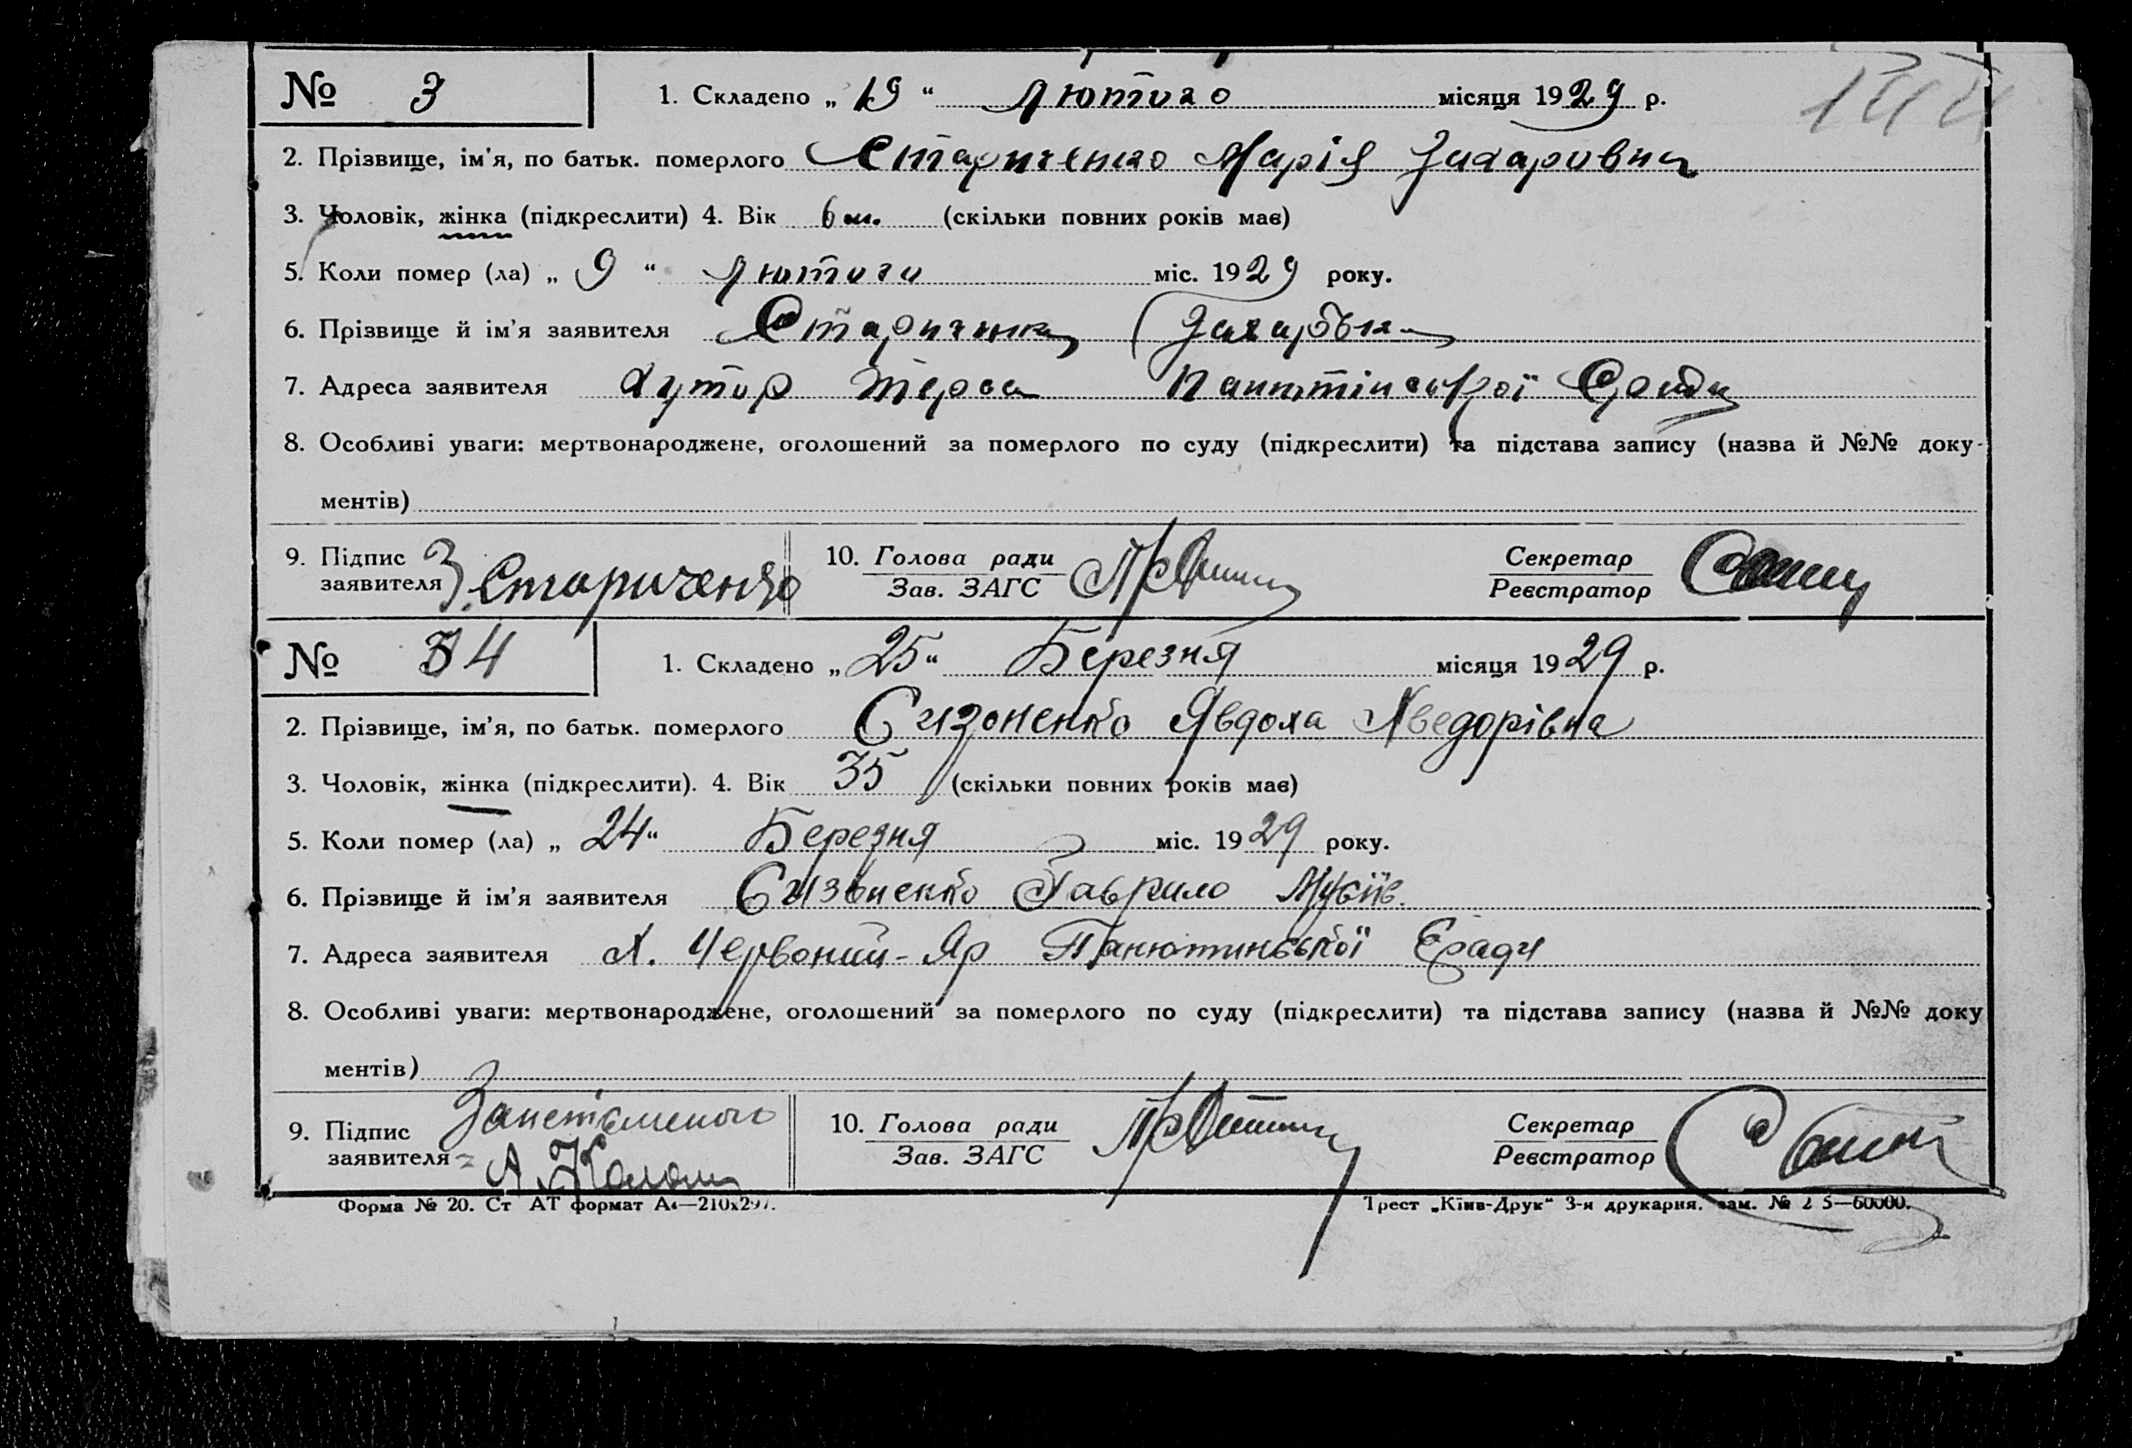 № 3 1. Складено „ 19 “ Лютого місяця 1929 р.
2. Прізвище, ім'я, по батьк. померлого Стариченко Марія Захаровна
3. Чоловік, жінка (підкреслити) 4. Вік 6 м. (скільки повних років має)
5. Коли помер (ла) „ 9 “ Лютого міс. 1929 року.
6. Прізвище й ім'я заявителя Стариченко
7. Адреса заявителя Хутор Терса Сради
8. Особливі уваги: мертвонароджене, оголошений за померлого по суду (підкреслити) та підстава запису (назва й №№ доку-
ментів)
9. Підпис заявителя З. Стариченко 10. Голова ради Зав. ЗАГС Секретар Реєстратор
№ 4 1. Складено „ 25 “ Березня місяця 1929 р.
2. Прізвище, ім'я, по батьк. померлого Сизоненко Явдоха Хведорівна
3. Чоловік, жінка (підкреслити). 4. Вік 35 (скільки повних років має)
5. Коли помер (ла) „ 24 “ Березня міс. 1929 року.
6. Прізвище й ім'я заявителя Сизоненко Гаврило
7. Адреса заявителя Х. Червоний-Яр Панютинської С.ради
8. Особливі уваги: мертвонароджене, оголошений за померлого по суду (підкреслити) та підстава запису (назва й №№ доку
ментів)
9. Підпис заявителя 10. Голова ради Зав. ЗАГС Секретар Реєстратор
Форма № 20. Ст АТ формат А4—210х297. Трест „Київ-Друк“ 3-я друкарня. зам. № 2 5—60000.